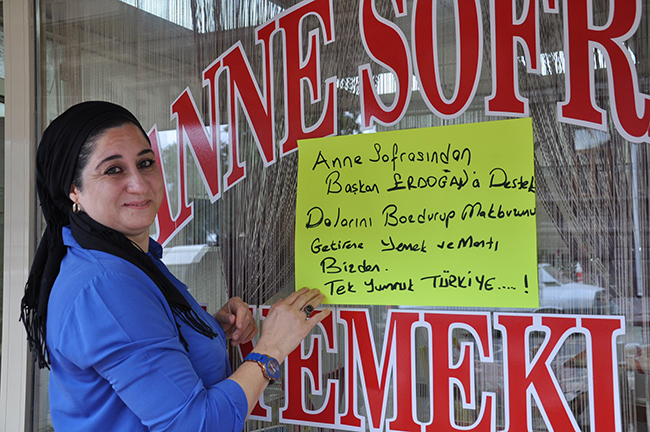 ANNE SOFR
Anne Sofrasından
Başkan ERDOĞAN'a Destek
Dolarını Bozdurup Makbuzunu
Getirene Yemek ve Mantı
Bizden.
Tek Yumruk TÜRKİYE....!
YEMEKL